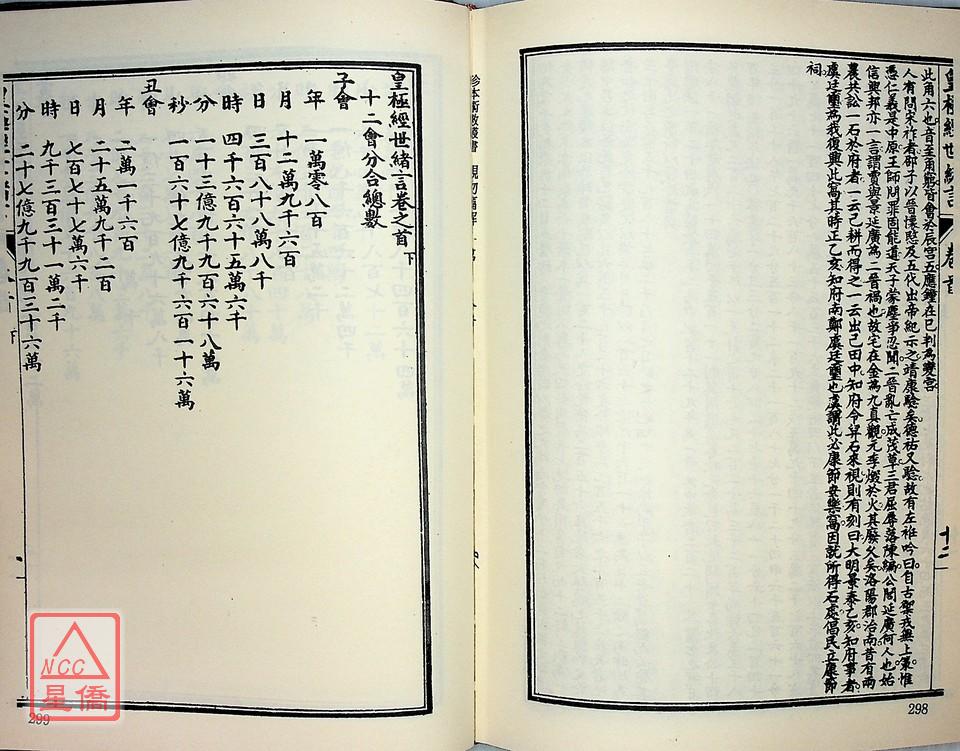 此角六也音至角竆皆會於辰宫五應鐘在巳判為變宫
人有問宋祚者邵子以晉懷愍及五代出帝紀示之靖康驗矣德祐又驗故有左袵吟曰自古禦戎無上策惟
憑仁義是中原王師問罪固能道天子蒙塵爭忍聞二晉亂亡成茂草三君屈辱落陳編公閭延廣何人也始
信興邦亦一言謂賈與景延廣為二晉禍也故宅在金為九真觀元季燬於火其廢久矣洛陽郡治南昔有兩
農共訟一石於府者一云己耕而得之一云出己田中知府令舁石來視則有刻曰大明景泰乙亥知府事者
虞廷璽為我復興此窩其時正乙亥知府南鄭虞廷璽也虞謂此必康節安樂窩因就所得石處倡民立康節
祠
十二
298
皇極經世緒言卷之首 下
十二會分合總數
子會
年 一萬零八百
月 十二萬九千六百
日 三百八十八萬八千
時 四千六百六十五萬六千
分 一十三億九千九百六十八萬
秒 一百六十七億九千六百一十六萬
丑會
年 二萬一千六百
月 二十五萬九千二百
日 七百七十七萬六千
時 九千三百三十一萬二千
分 二十七億九千九百三十六萬
299
NCC
星僑